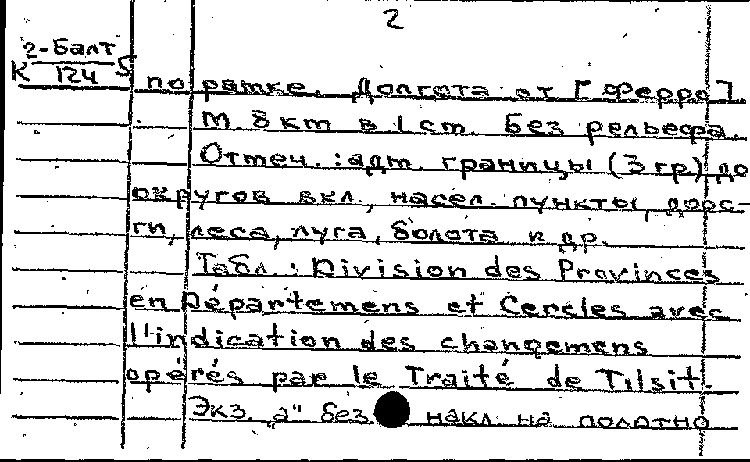 2
2-Балт
К 124 5
по рамке. Долгота от [Ферро].
М. 8 км в 1 см. Без рельефа.
Отмеч.: адм. границы (3 гр) до
округов вкл., насел. пункты, доро-
ги, леса, луга, болота и др.
Табл.: Division des Provinces
en Départemens et Cercles avec
l'indication des changemens
opérés par le Traité de Tilsit.
Экз. "а" без накл. на полотно